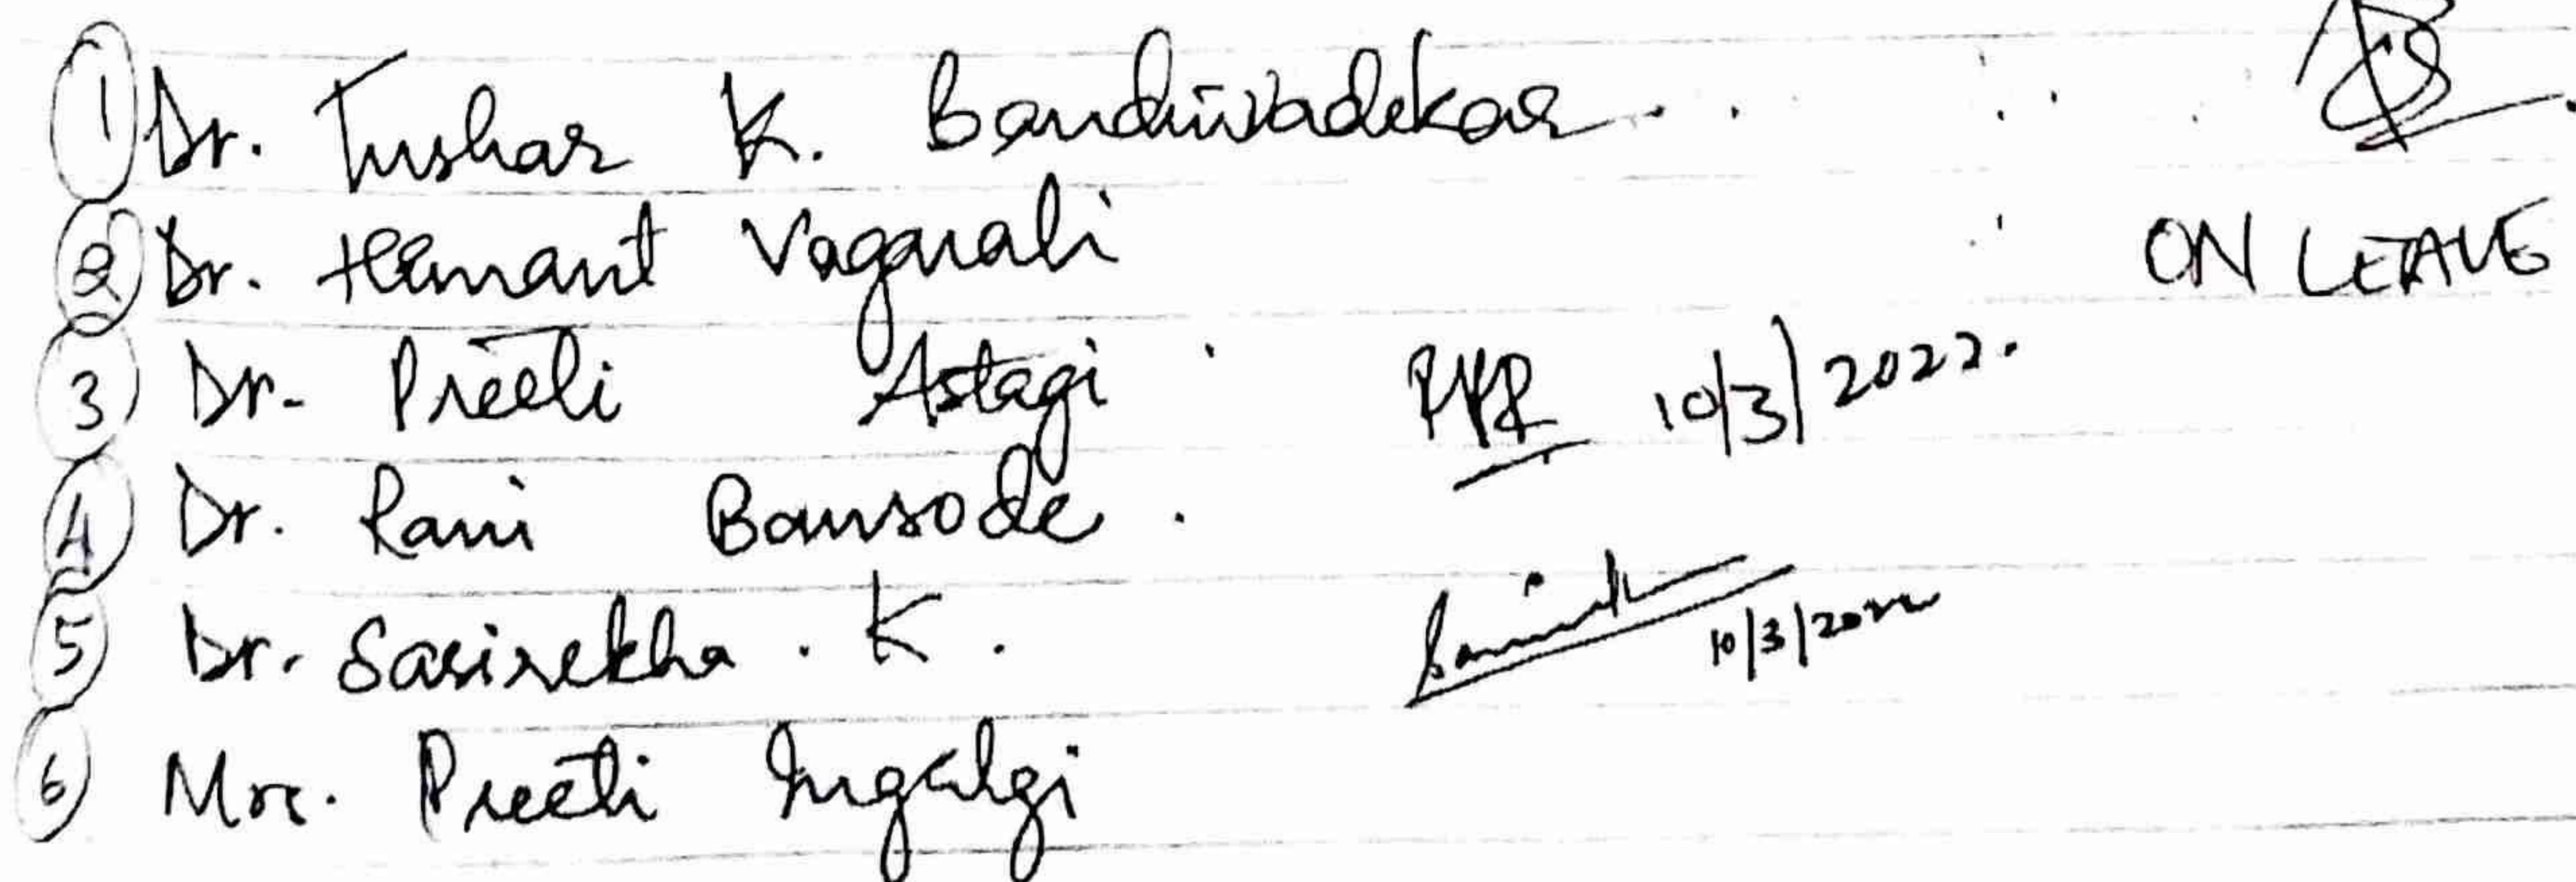 1 Dr. Tushar K. Bandiwadekar . . . . .
2 Dr. Hemant Vagarali ON LEAVE
3 Dr. Preeti Astagi 10/3/2022.
4 Dr. Rani Bansode .
5 Dr. Sasirekha . K . 10/3/2022
6 Mrs. Preeti Ingalgi